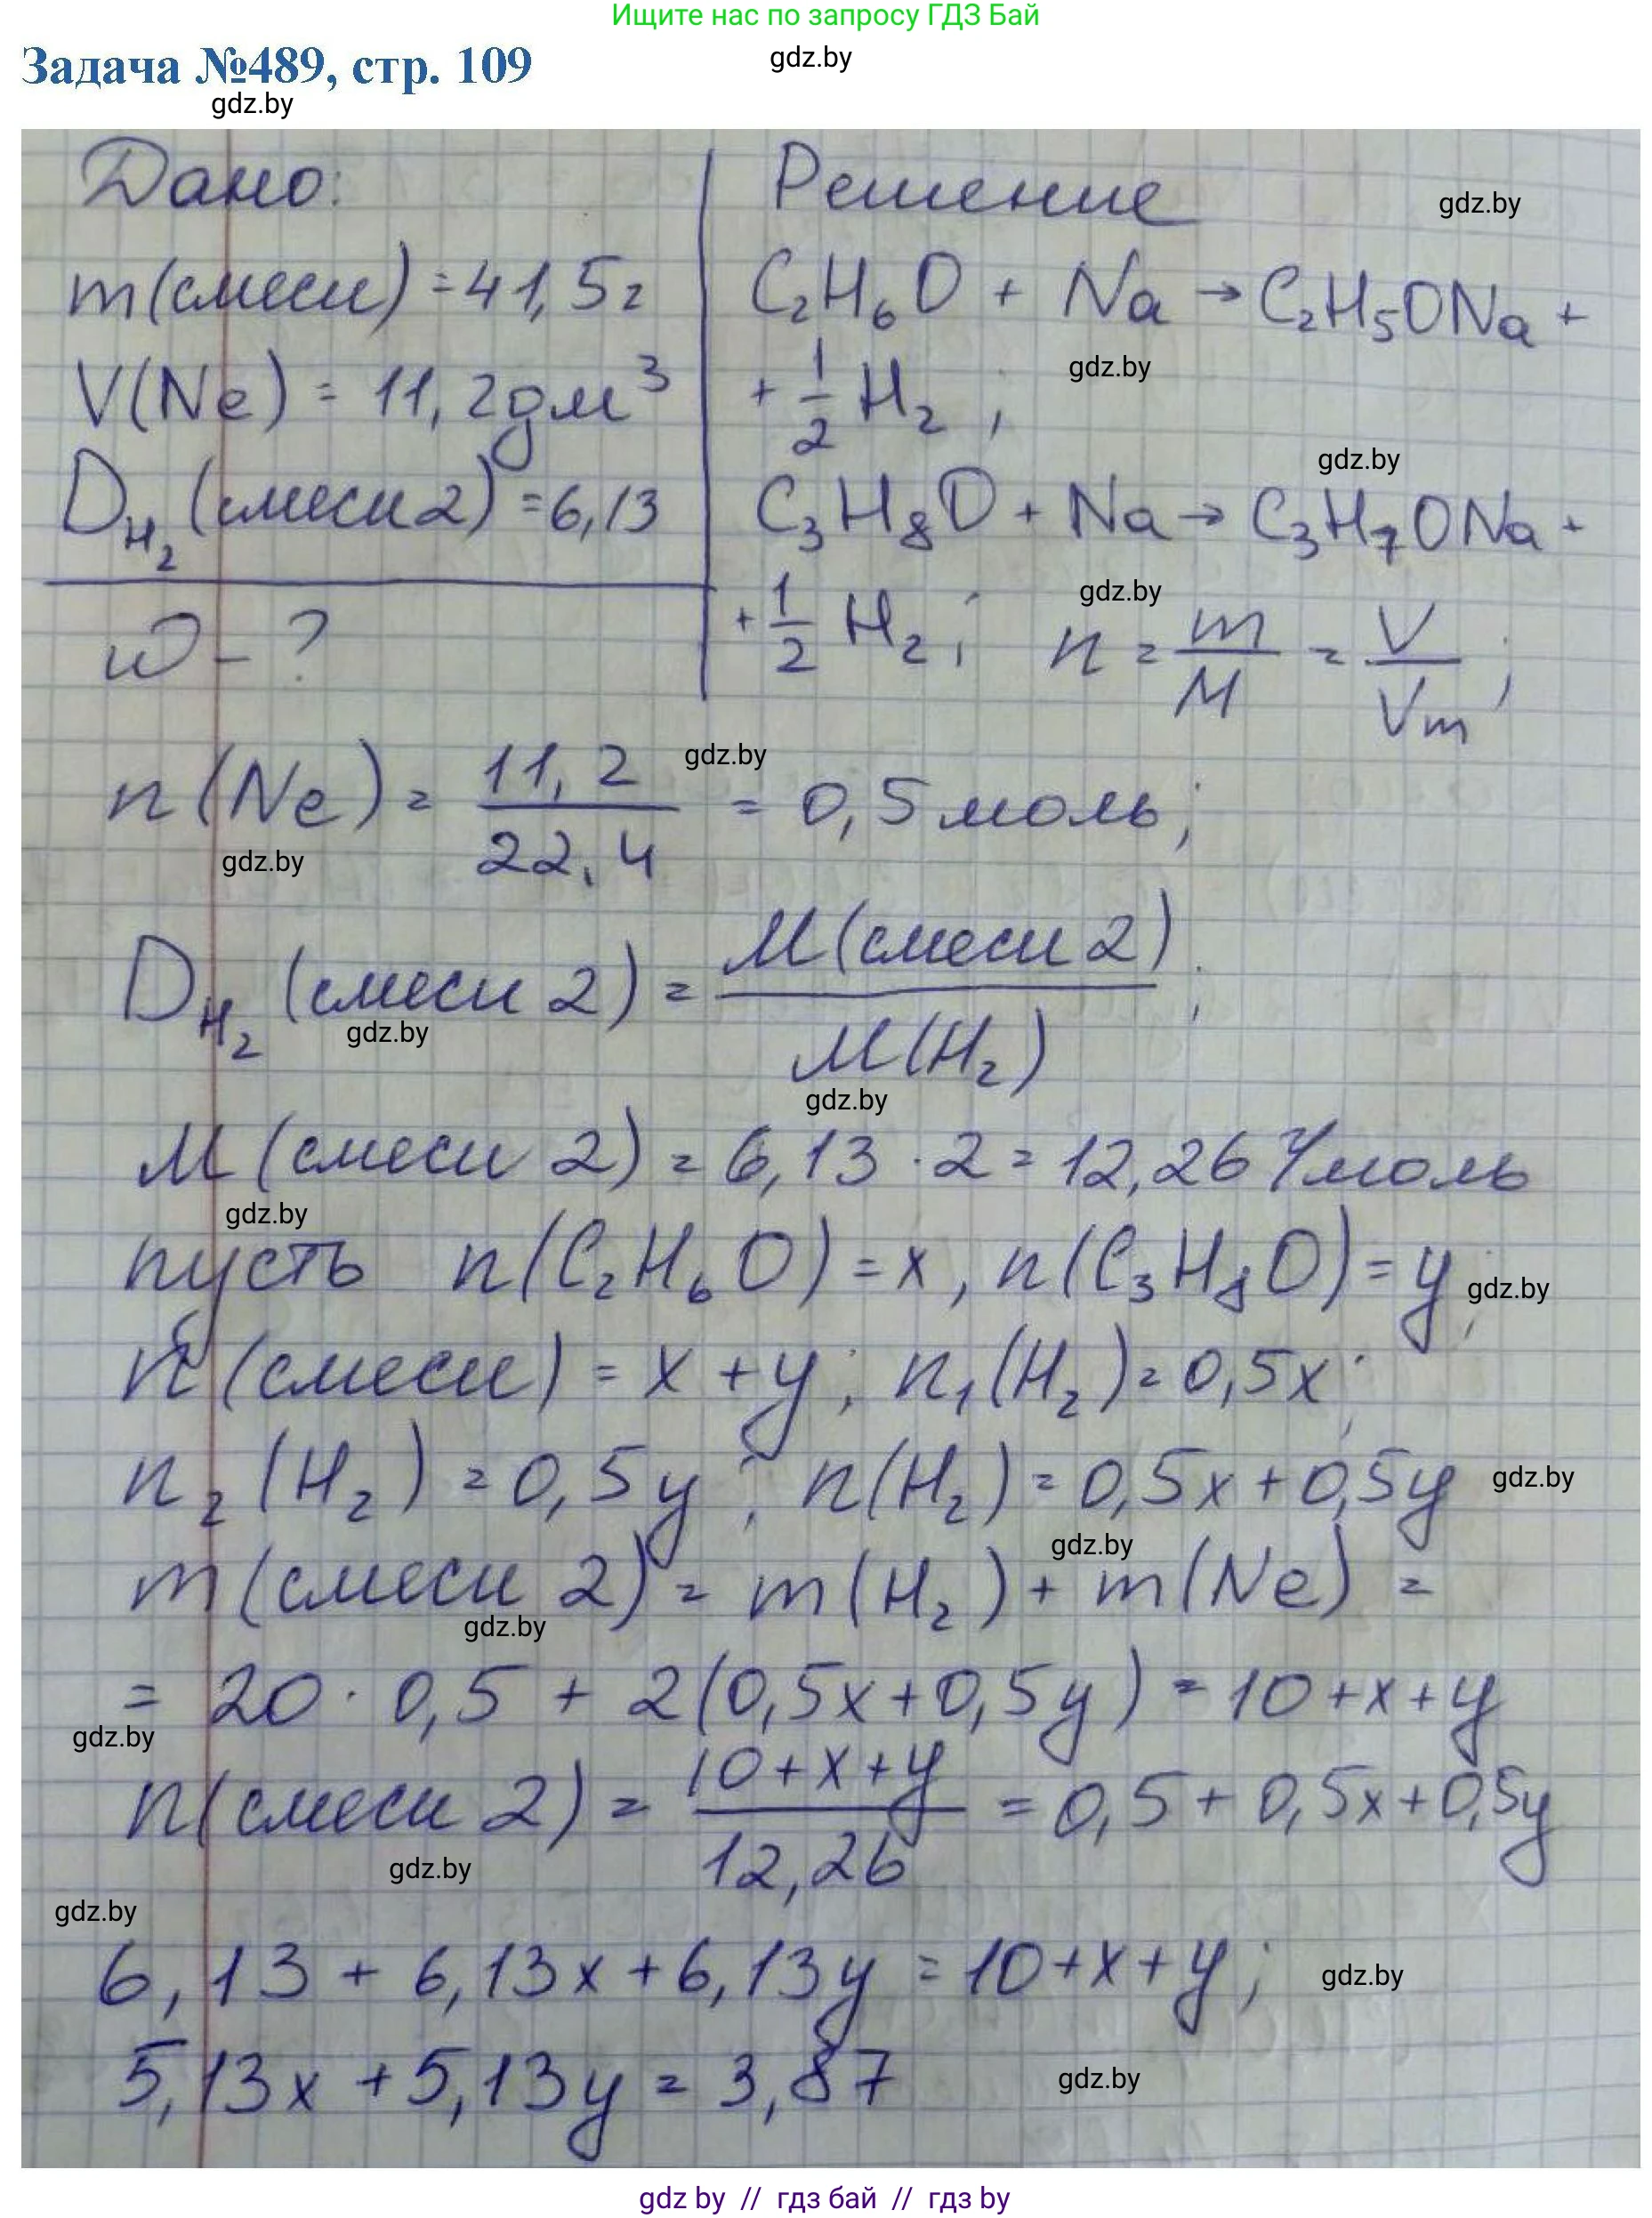 Ищите нас по запросу ГДЗ Бай
Задача №489, стр. 109
gdz.by
gdz.by
Дано:
Решение
gdz.by
m(смеси) = 41,5г
C₂H₆O + Na → C₂H₅ONa +
V(Ne) = 11,2дм³
+ 1/2 H₂ ;
gdz.by
D_H₂ (смеси 2) = 6,13
gdz.by
C₃H₈O + Na → C₃H₇ONa +
gdz.by
ω - ?
+ 1/2 H₂ ; n = m/M = V/Vm ;
n(Ne) = 11,2/22,4 = 0,5 моль;
gdz.by
gdz.by
D_H₂ (смеси 2) = M(смеси 2)/M(H₂) ;
gdz.by
gdz.by
M (смеси 2) = 6,13 · 2 = 12,26 г/моль
gdz.by
пусть n(C₂H₆O) = x, n(C₃H₈O) = y;
gdz.by
n(смеси) = x + y ; n₁(H₂) = 0,5x ;
n₂(H₂) = 0,5y ; n(H₂) = 0,5x + 0,5y
gdz.by
gdz.by
m(смеси 2) = m(H₂) + m(Ne) =
gdz.by
= 20 · 0,5 + 2(0,5x + 0,5y) = 10 + x + y
gdz.by
n(смеси 2) = 10 + x + y/12,26 = 0,5 + 0,5x + 0,5y
gdz.by
gdz.by
6,13 + 6,13x + 6,13y = 10 + x + y ;
gdz.by
5,13x + 5,13y = 3,87
gdz.by
gdz by // гдз бай // гдз by